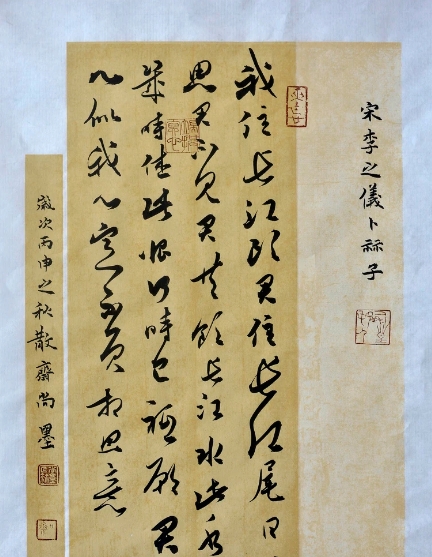 宋李之儀卜祘子
我住長江頭君住長江尾日
思君不見君共飲長江水此水
幾時休此恨何時已祗願君
心似我心定不負相思意
歲次丙申之秋散齋尚墨